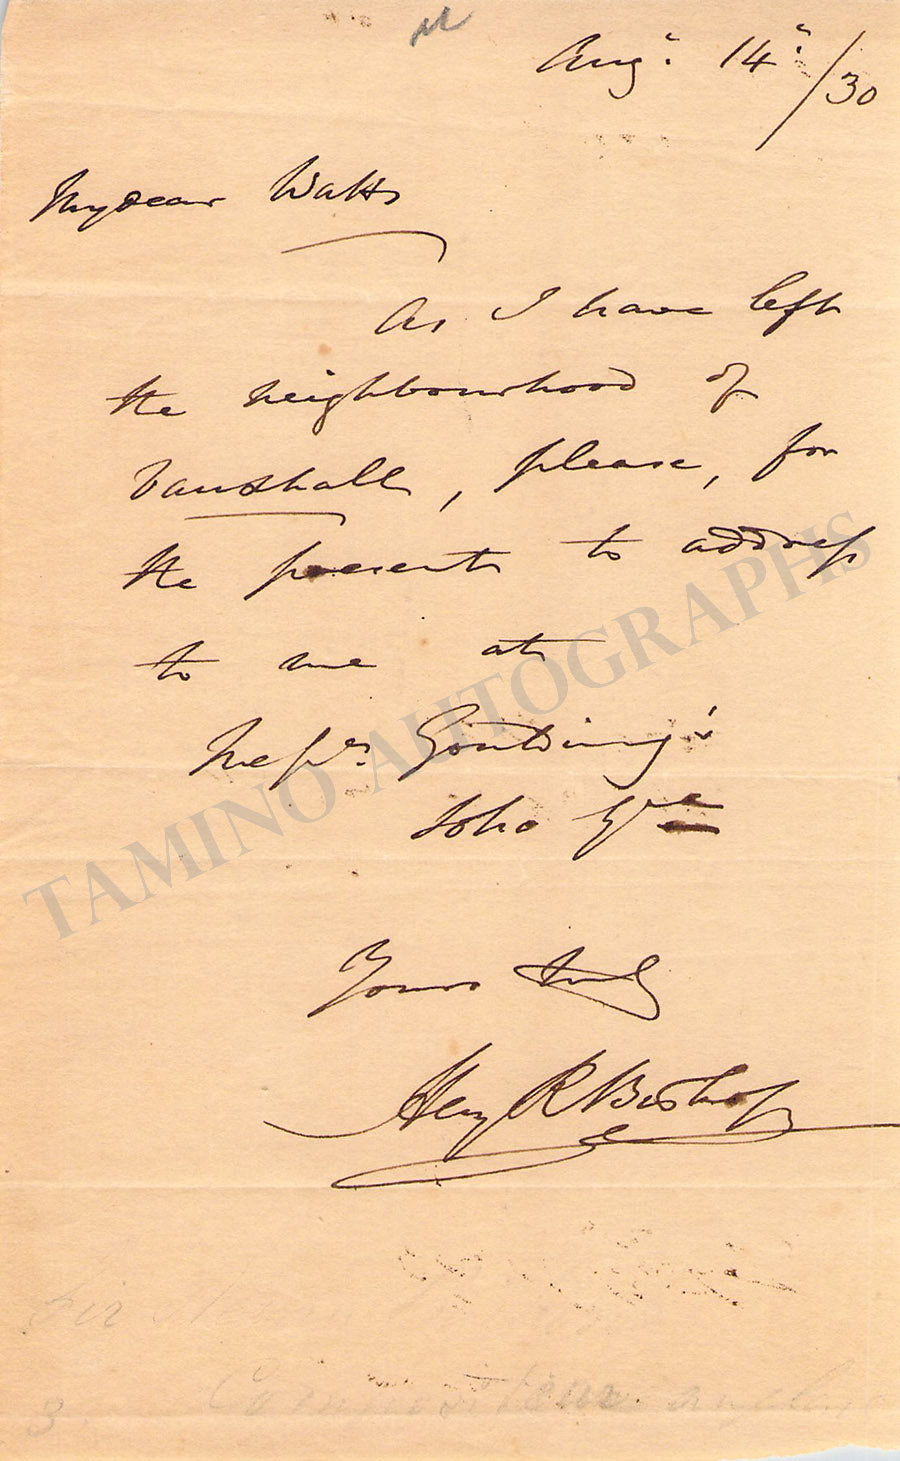 Augt. 14th. /30
My dear Watts
As I have left
the neighbourhood of
Vauxhall, please, for
the present to address
to me at
Messrs. Goulding's
Soho Sqre
Yours truly
Henry R Bishop
TAMINO AUTOGRAPHS
Sir
Compositeur anglais
3